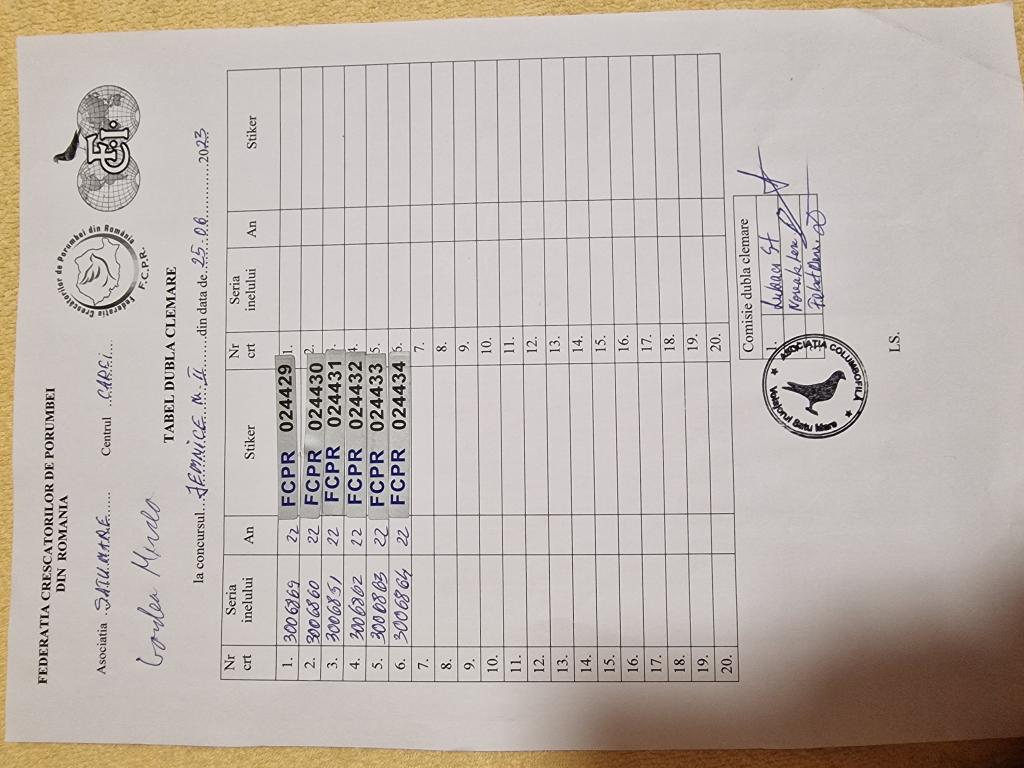 FEDERATIA CRESCATORILOR DE PORUMBEI
DIN ROMANIA
Federatia Crescatorilor de Porumbei din România
F.C.P.R.
Asociatia .SATU.MARE...... Centrul ..CAREI.....
TABEL DUBLA CLEMARE
la concursul... .......din data de .25.06...........2023
Nr crt Seria inelului An Stiker Nr crt Seria inelului An Stiker
1. 22 FCPR 024429 1.
2. 3006860 22 FCPR 024430 2.
3. 22 FCPR 024431 3.
4. 22 FCPR 024432 4.
5. 22 FCPR 024433 5.
6. 3006864 22 FCPR 024434 6.
7. 7.
8. 8.
9. 9.
10. 10.
11. 11.
12. 12.
13. 13.
14. 14.
15. 15.
16. 16.
17. 17.
18. 18.
19. 19.
20. 20.
Comisie dubla clemare
1. Lukacs St
ASOCIAȚIA COLUMBOFILA
Voiajorul Satu Mare
LS.